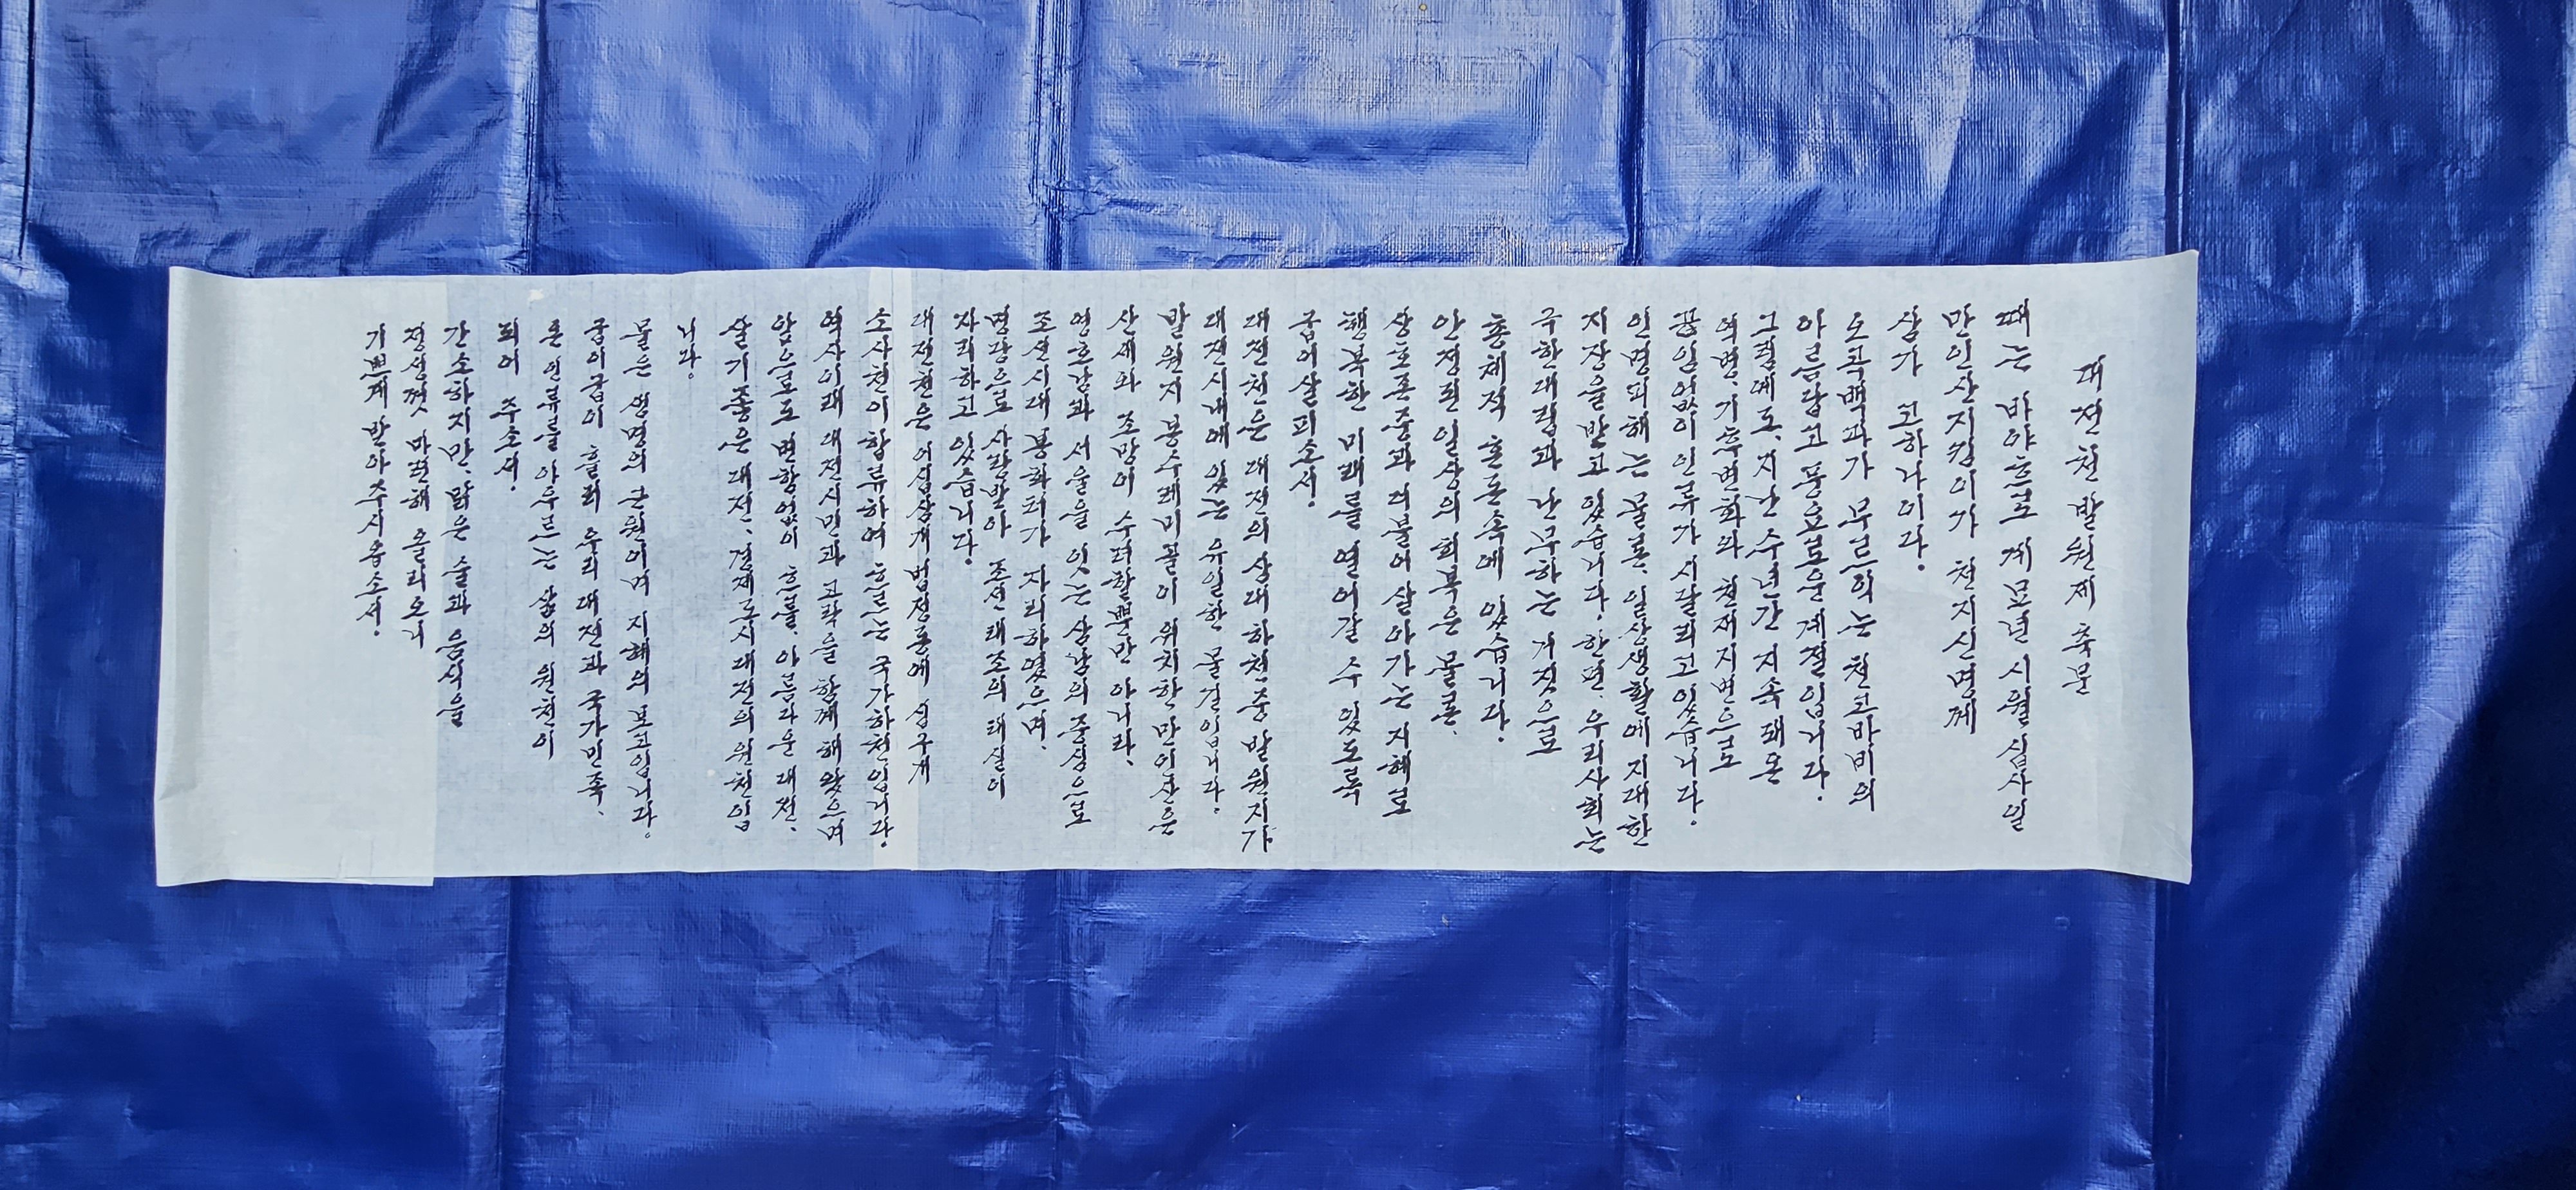 대전천 발원제 축문
때는 바야흐로 계묘년 시월 십사일
만인산지킴이가 천지신명께
삼가 고하나이다.
오곡백과가 무르익는 천고마비의
아름답고 풍요로운 계절입니다.
그럴께도, 지난 수년간 지속돼온
역병, 기후변화와 천재지변으로
끊임없이 인류가 시달리고 있습니다.
인명피해는 물론, 일상생활에 지대한
지장을 받고 있습니다. 한편, 우리사회는
극한대립과 난무하는 거짓으로
총체적 혼돈속에 있습니다.
안정된 일상의 회복은 물론,
상호존중과 더불어 살아가는 지혜로
행복한 미래를 열어갈 수 있도록
굽어살피소서.
대전천은 대전의 삼대하천중 발원지가
대전시내에 있는 유일한 물길입니다.
발원지 봉수레미골이 위치한 만인산은
산세와 조망이 수려할뿐만 아니라,
영호남과 서울을 잇는 삼남의 중심으로
조선시대 봉화터가 자리하였으며,
명당으로 사랑받아 조선 태조의 태실이
자리하고 있습니다.
대전천은 이십삼개 법정동에 십구개
소사천이 합류하여 흐르는 국가하천입니다.
역사이래 대전시민과 고락을 함께 해왔으며
앞으로도 변함없이 흐를, 아름다운 대전,
살기좋은 대전, 경제도시 대전의 원천입
니다.
물은 생명의 근원이며 지혜의 보고입니다.
굽이굽이 흘러 우리 대전과 국가민족,
온 인류를 아우르는 삶의 원천이
되어 주소서.
간소하지만, 맑은 술과 음식을
정성껏 마련해 올리오니
기쁘게 받아주시옵소서.